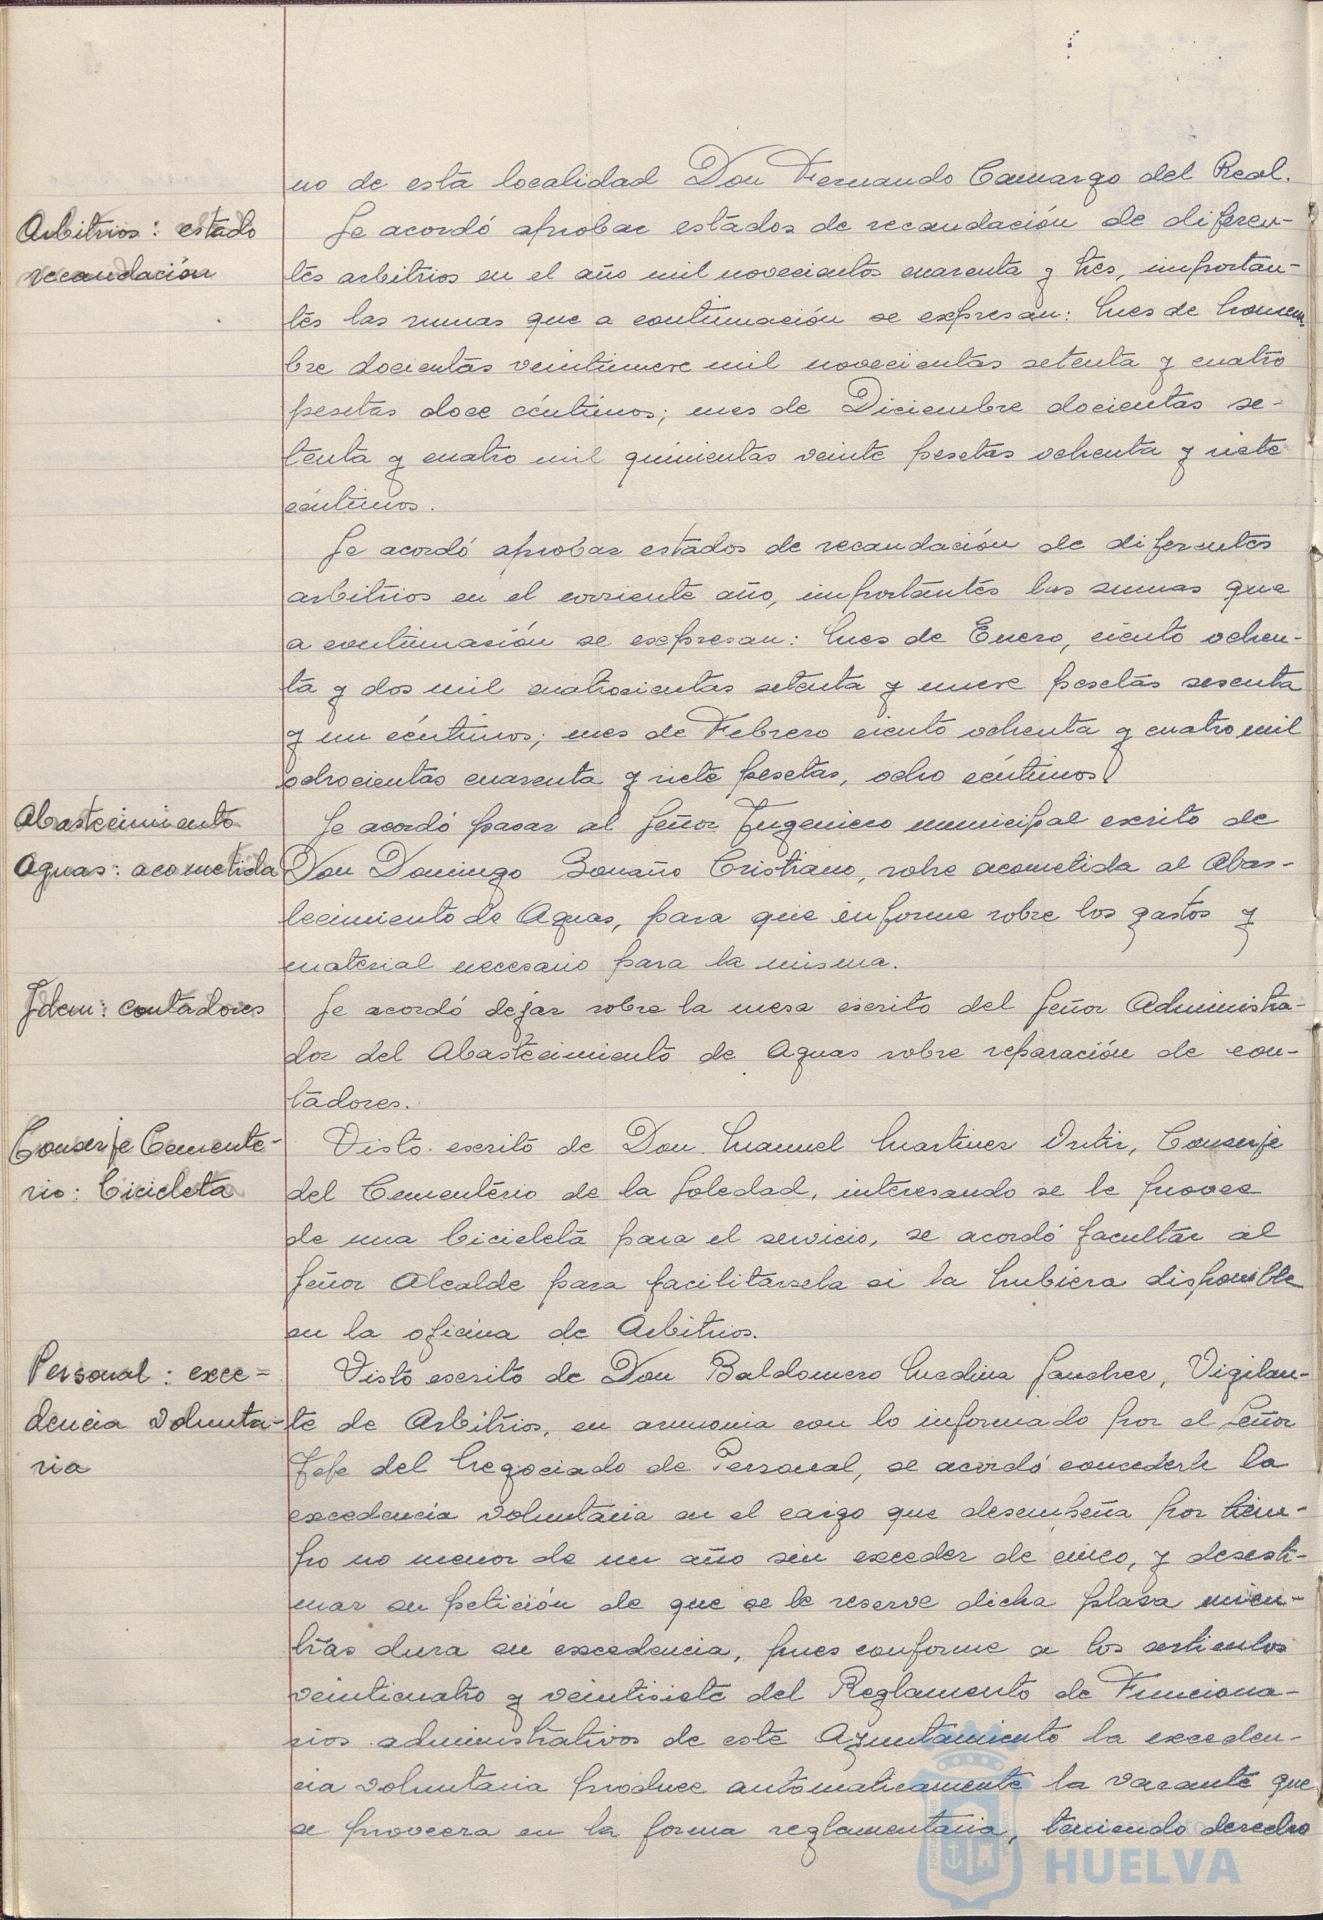 no de esta localidad Don Fernando Camargo del Real.
Arbitrios: estado
recaudación
Se acordó aprobar estados de recaudación de diferen-
tes arbitrios en el año mil novecientos cuarenta y tres, importan-
tes las sumas que a continuación se expresan: Mes de Noviem-
bre docientas veintinueve mil novecientas setenta y cuatro
pesetas doce céntimos; mes de Diciembre docientas se-
tenta y cuatro mil quinientas veinte pesetas ochenta y siete
céntimos.
Se acordó aprobar estados de recaudación de diferentes
arbitrios en el corriente año, importantes las sumas que
a continuación se expresan: Mes de Enero, ciento ochen-
ta y dos mil cuatrocientas setenta y nueve pesetas sesenta
y un céntimos; mes de Febrero ciento ochenta y cuatro mil
ochocientas cuarenta y siete pesetas, ocho céntimos.
Abastecimiento
Aguas: acometida
Se acordó pasar al Señor Ingeniero municipal escrito de
Don Domingo Cristiano, sobre acometida al Abas-
tecimiento de Aguas, para que informe sobre los gastos y
material necesario para la misma.
Idem: contadores
Se acordó dejar sobre la mesa escrito del Señor Administra-
dor del Abastecimiento de Aguas sobre reparación de con-
tadores.
Conserje Cemente-
rio: bicicleta
Visto escrito de Don Manuel Martinez Ortiz, Conserje
del Cementerio de la Soledad, interesando se le provee
de una bicicleta para el servicio, se acordó facultar al
Señor Alcalde para facilitarsela si la hubiera disponible
en la oficina de Arbitrios.
Personal: exce=
dencia volunta-
ria
Visto escrito de Don Baldomero Medina Sanchez, Vigilan-
te de Arbitrios, en armonia con lo informado por el Señor
Jefe del Negociado de Personal, se acordó concederle la
excedencia voluntaria en el cargo que desempeña por tiem-
po no menor de un año sin exceder de cinco, y desesti-
mar su petición de que se le reserve dicha plaza mien-
tras dura su excedencia, pues conforme a los articulos
veinticuatro y veintisiete del Reglamento de Funciona-
rios administrativos de este Ayuntamiento la exceden-
cia voluntaria produce automaticamente la vacante que
se proveera en la forma reglamentaria, teniendo derecho
HUELVA